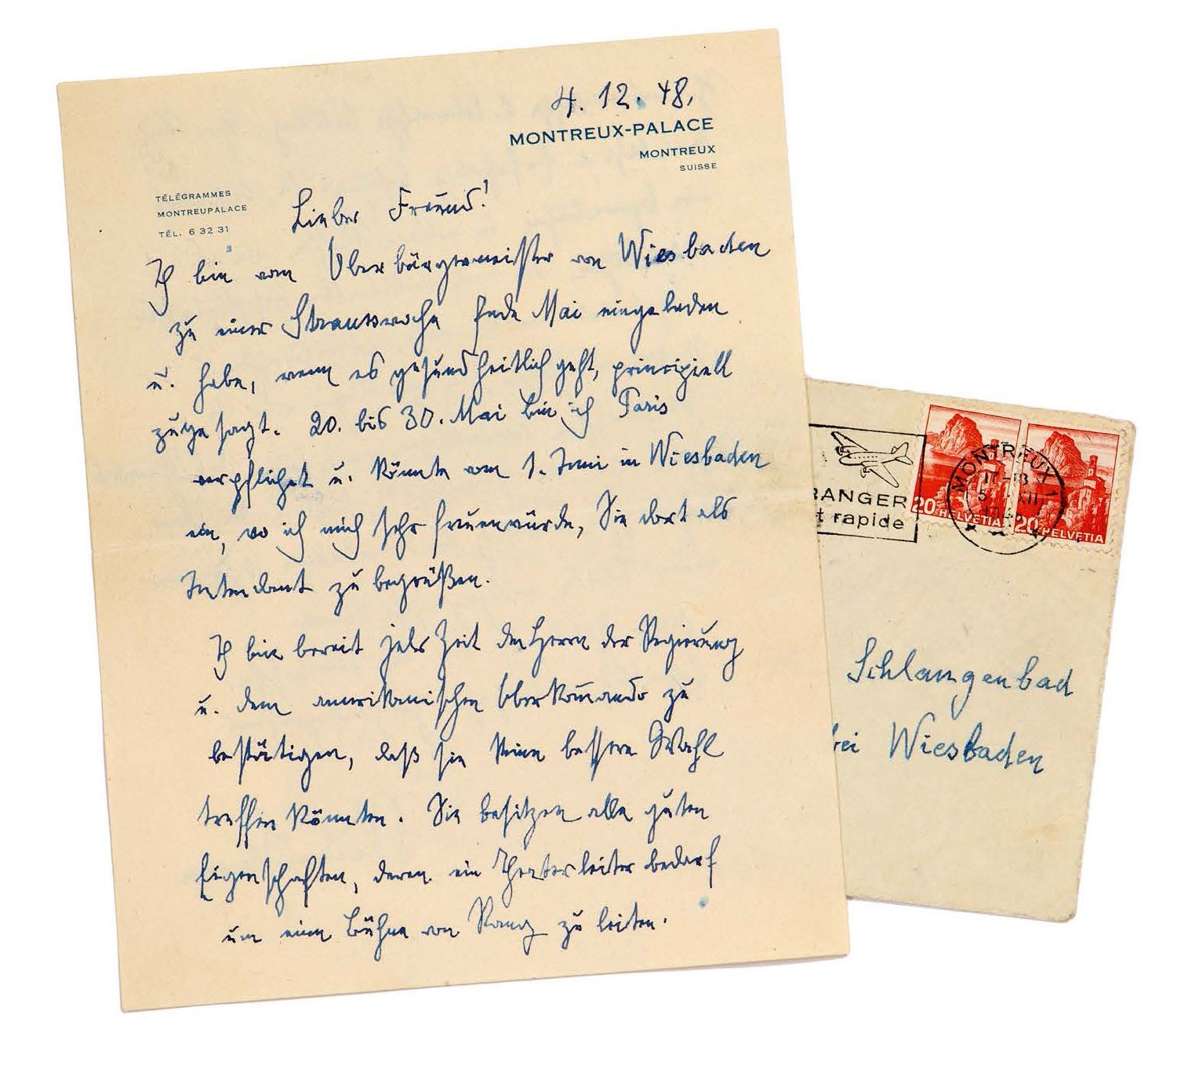 4. 12. 48.
MONTREUX-PALACE
MONTREUX
SUISSE
TÉLÉGRAMMES
MONTREUPALACE
TÉL. 6 32 31
Lieber Freund!
Ich bin vom Oberbürgermeister von Wiesbaden
zu einer Strausswoche Ende Mai eingeladen
u. habe, wenn es gesundheitlich geht, principiell
zugesagt. 20. bis 30. Mai bin ich Paris
verpflichtet u. könnte vom 1. Juni in Wiesbaden
ein, wo ich mich sehr freuen würde, Sie dort als
Intendant zu begrüßen.
Ich bin bereit Zeit den Herrn der Regierung
u. dem amerikanischen Oberkomando zu
bestätigen, daß sie keine bessere Wahl
treffen könnten. Sie besitzen alle guten
Eigenschaften, deren ein Theaterleiter bedarf
um eine Bühne von Rang zu leiten.
RANGER
t rapide
MONTREUX 1
17-18
20 HELVETIA
20 HELVETIA
Schlangenbad
bei Wiesbaden